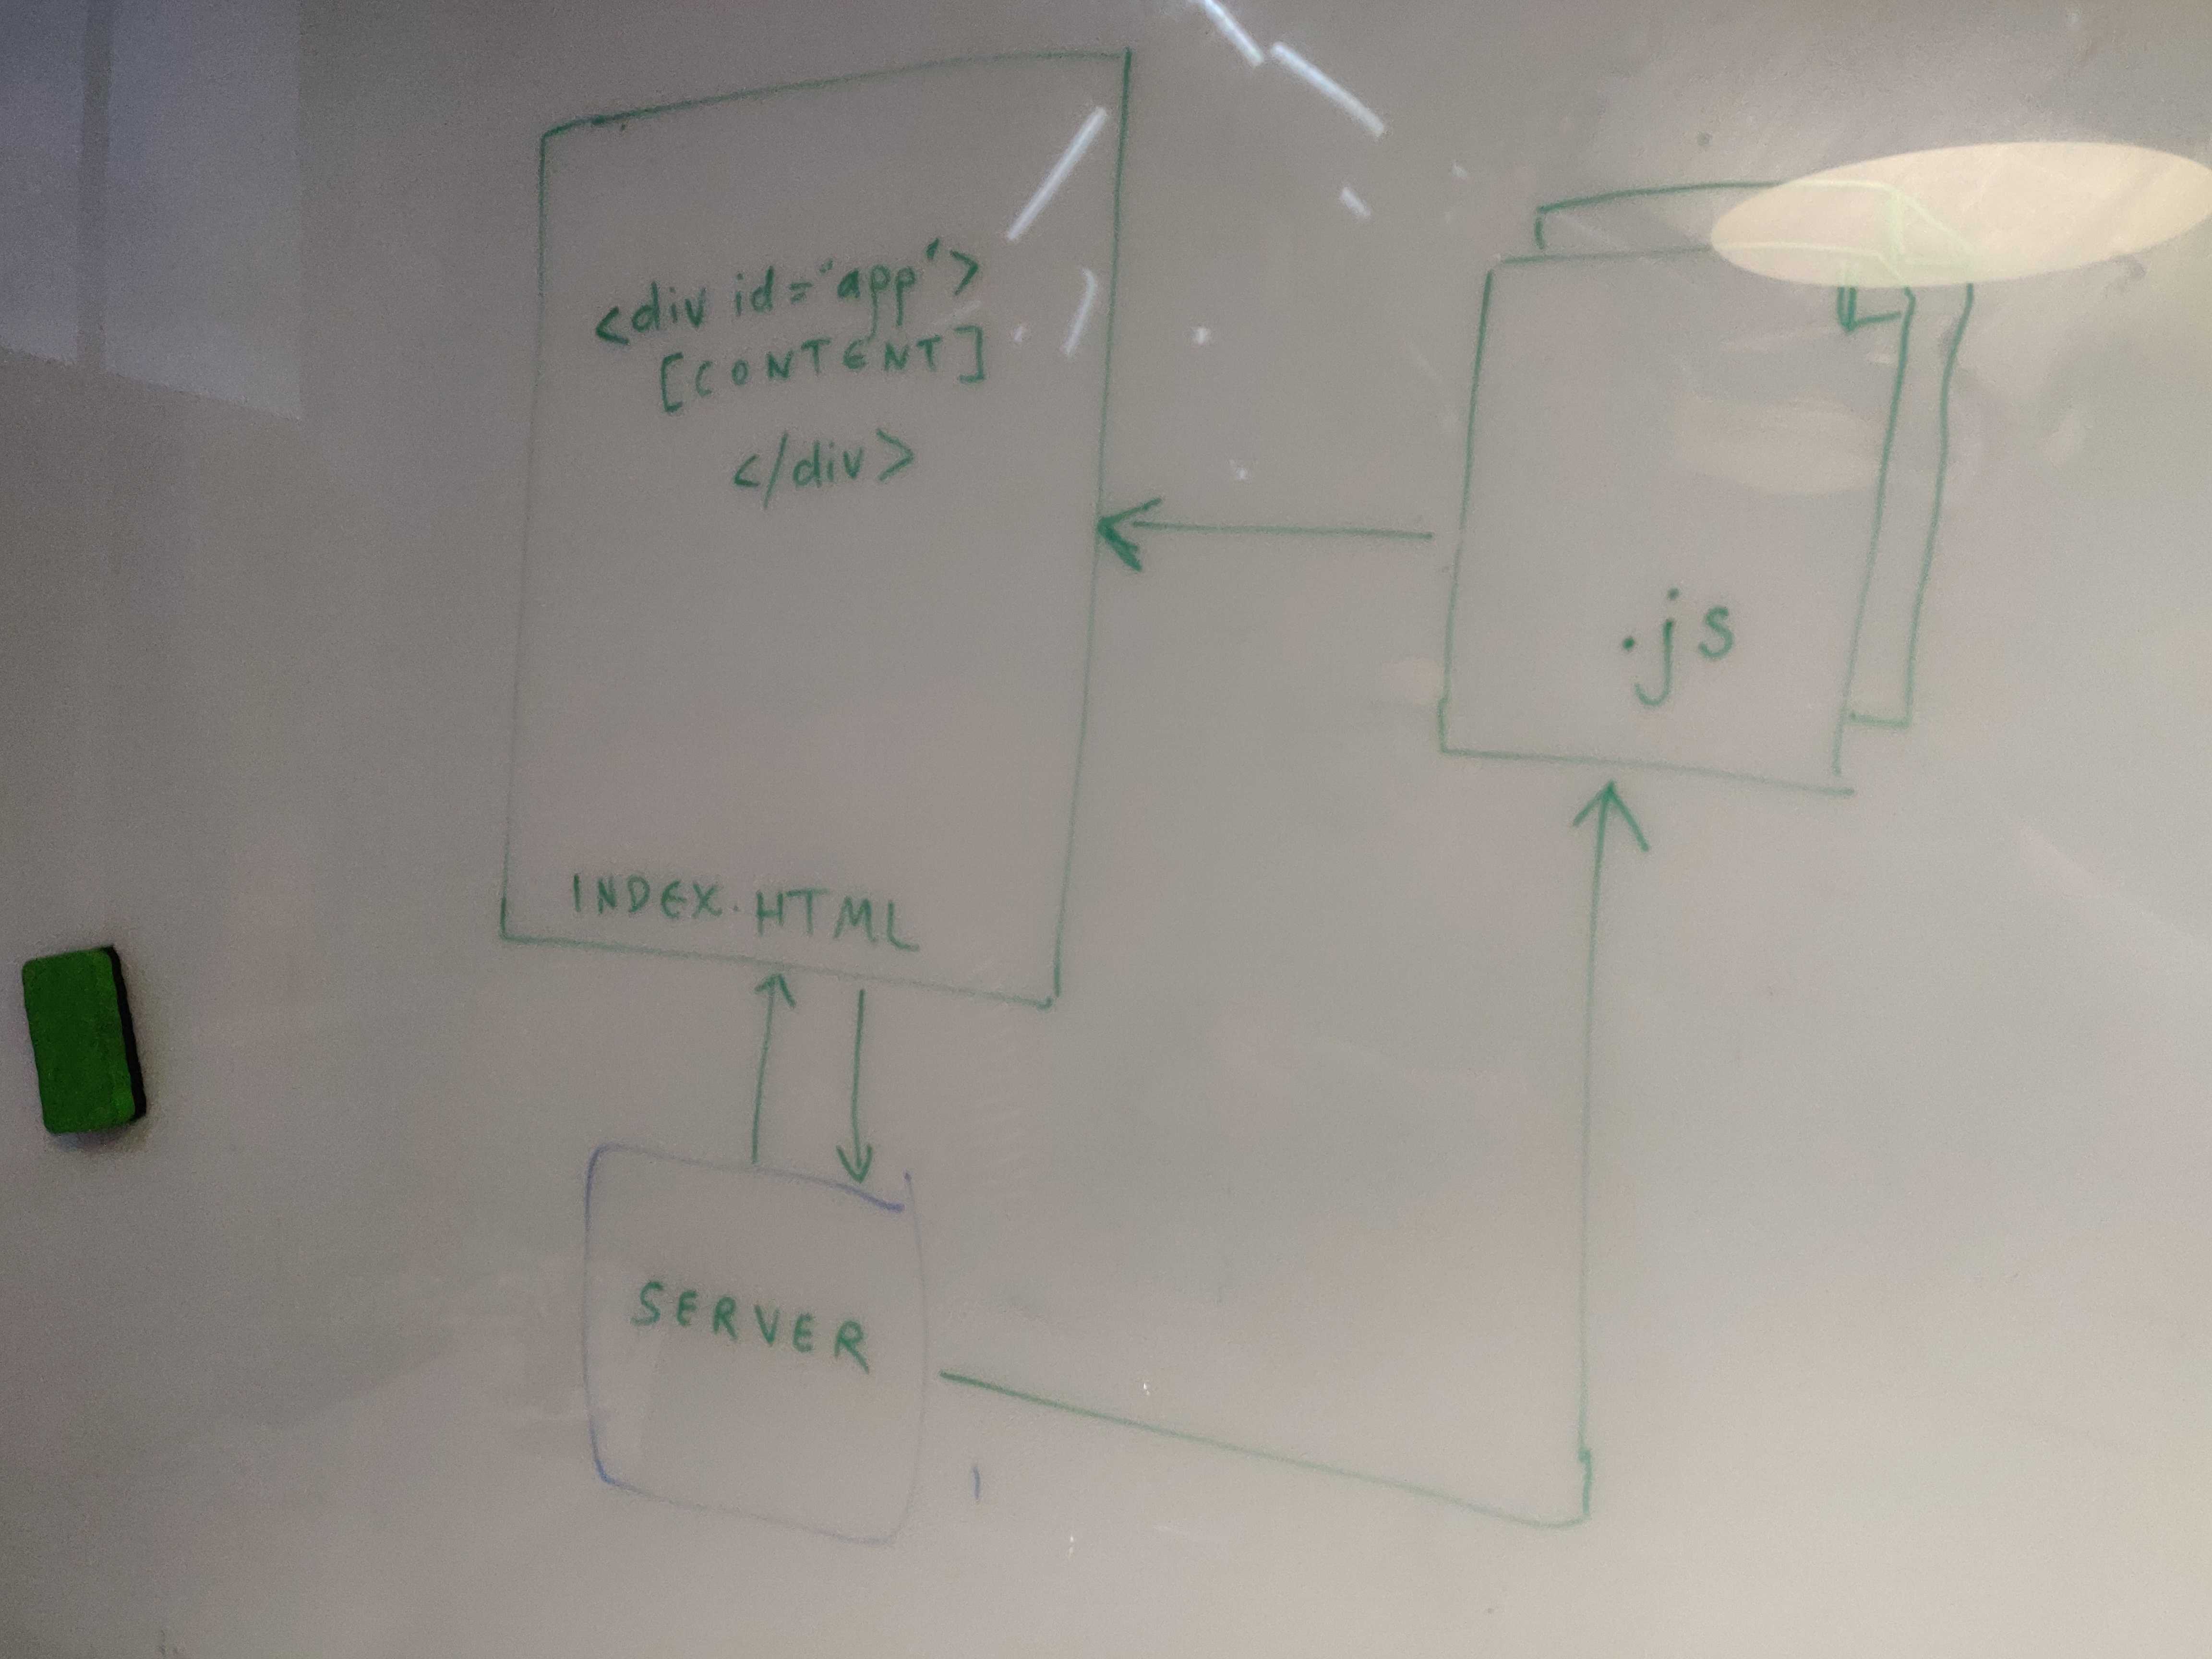 <div id="app">
[CONTENT]
</div>
.js
INDEX.HTML
SERVER